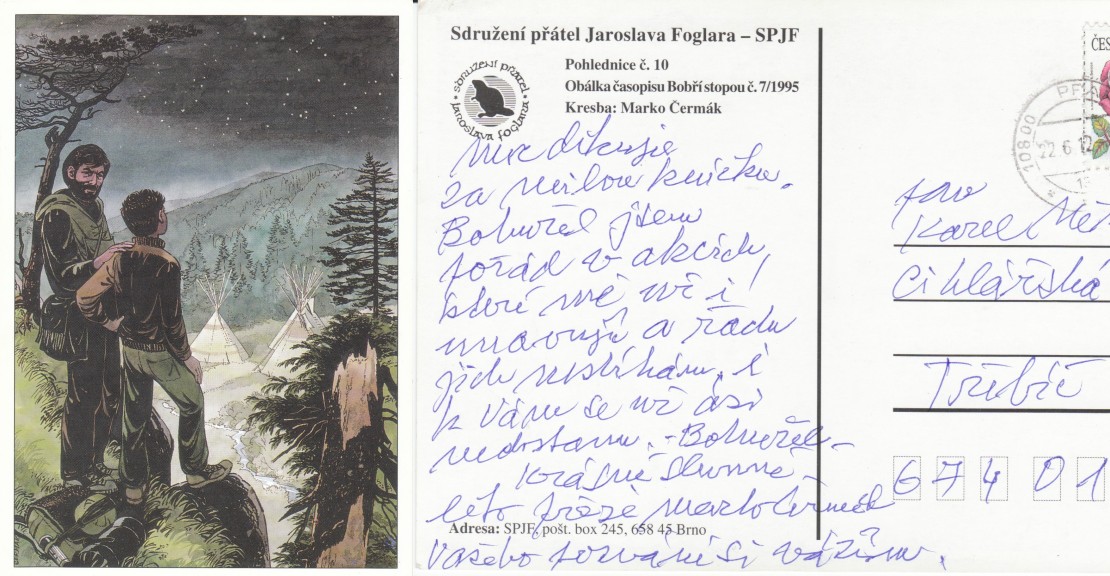 Sdružení přátel Jaroslava Foglara – SPJF
Pohlednice č. 10
Obálka časopisu Bobří stopou č. 7/1995
Kresba: Marko Čermák
SDRUŽENÍ PŘÁTEL
JAROSLAVA FOGLARA
Moc děkuji
za milou knížku.
Bohužel jsem
pořád v akcích,
které mě už i
unavují a řadu
jich nestíhám, i
k Vám se už asi
nedostanu. – Bohužel –
Krásné slunné
léto přeje Marko Čermák
Adresa: SPJF, pošt. box 245, 658 45 Brno
Vašeho pozvání si vážím.
ČES
108 00
22.6.12
pan
Karel
Cihlářská
Třebíč
674 01